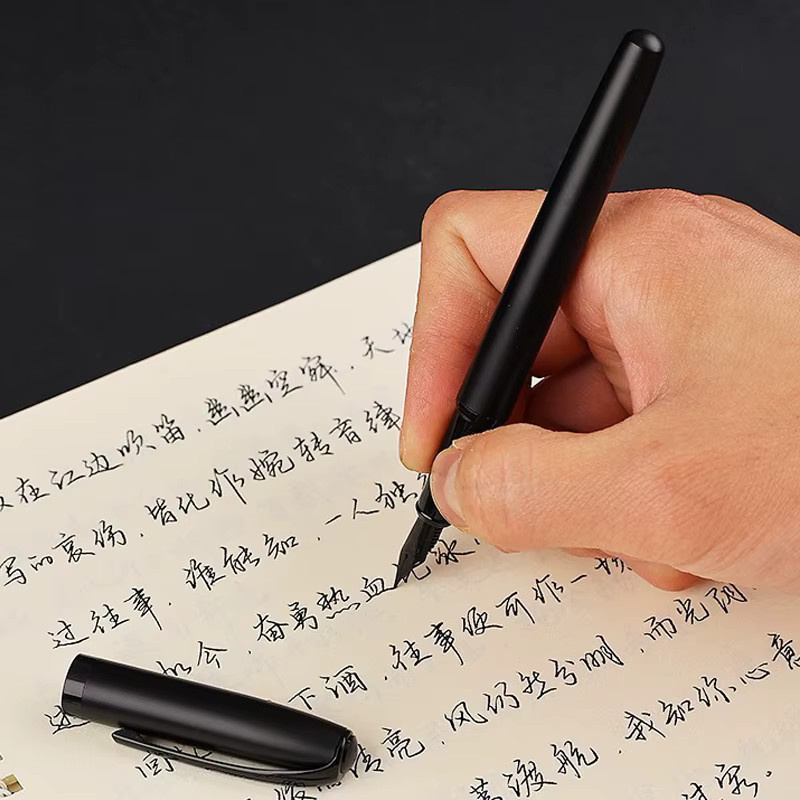 在江边吹笛,幽幽空,天
写的哀伤,皆化作婉转音律
过往事,谁能知,一人独
如今,奋勇热血 冰
下酒,往事便可作一
间 亮,风仍然兮明,而光阴
渡航,我知你心意
过客。